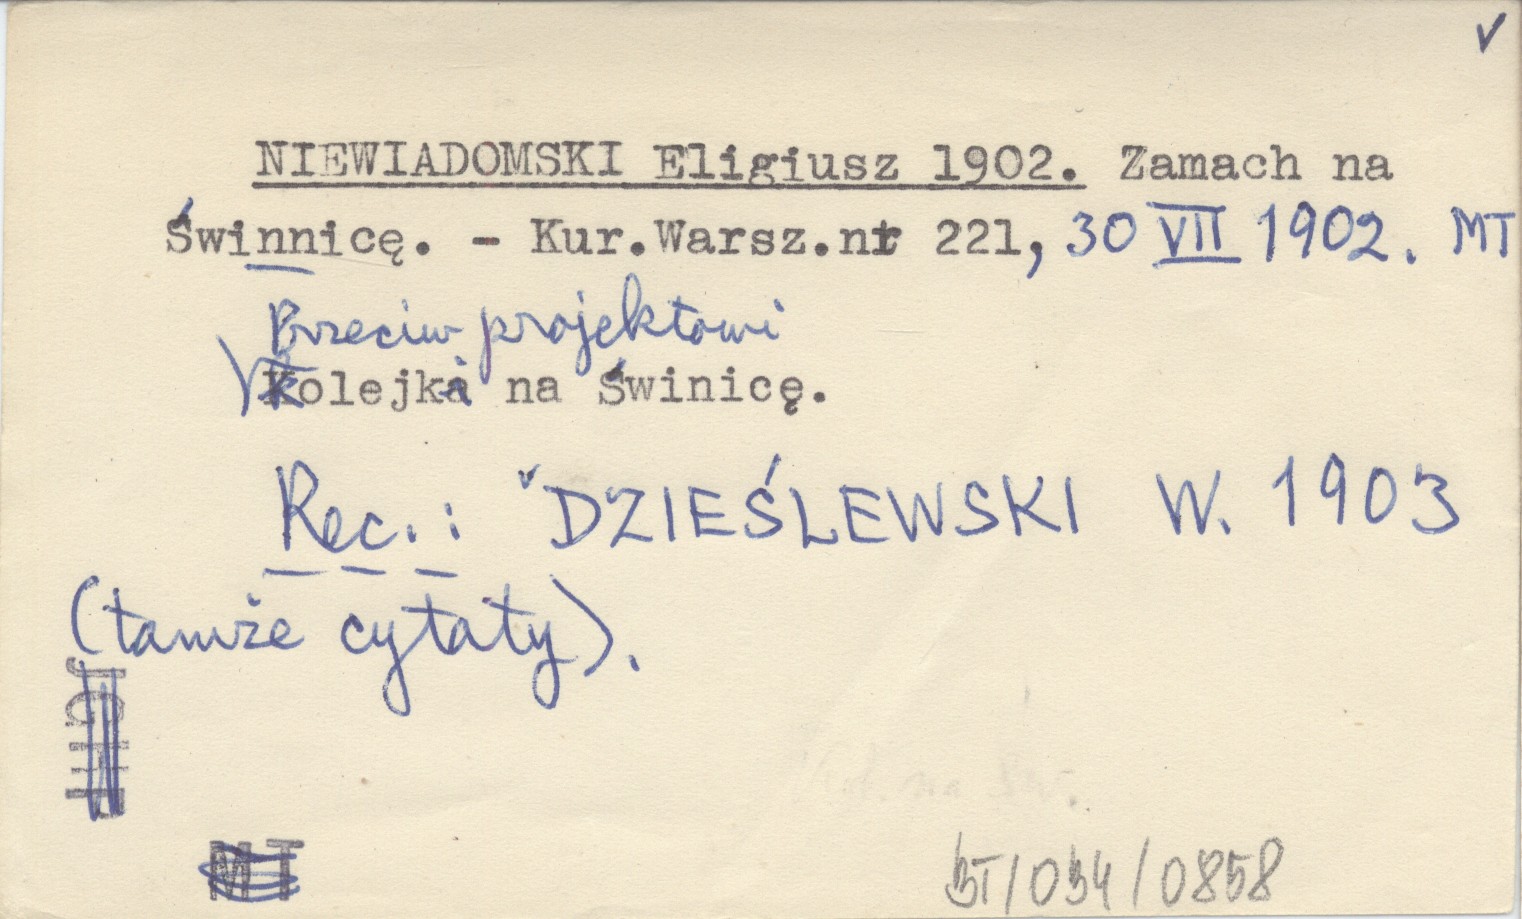 NIEWIADOMSKI Eligiusz 1902. Zamach na
Świnnicę. - Kur.Warsz.nr 221, 30 VII 1902. MT
Przeciw projektowi
kolejki na Świnicę.
Rec.: DZIEŚLEWSKI W. 1903
(tamże cytaty).
MT
BT/034/0858